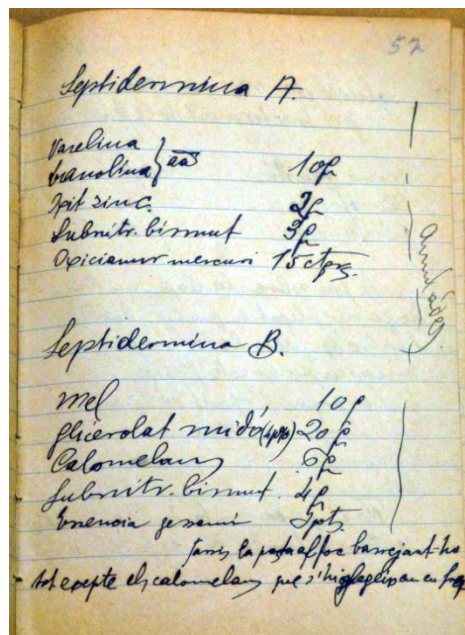 57
Septidermina A.
Vaselina
Lanolina } aa
10 g
Oxit zinc. 2 g
Subnitr. bismut 3 g
Oxicianur mercuri 15 ctgrs.
Septidermina B.
Mel 10 g
Glicerolat midó (4 p%) 20 g
Calomelans 6 g
Subnitr. bismut. 4 g
Essencia gessamí
la pasta al foc barrejant-ho
tot excepte els calomelans que s'hi en